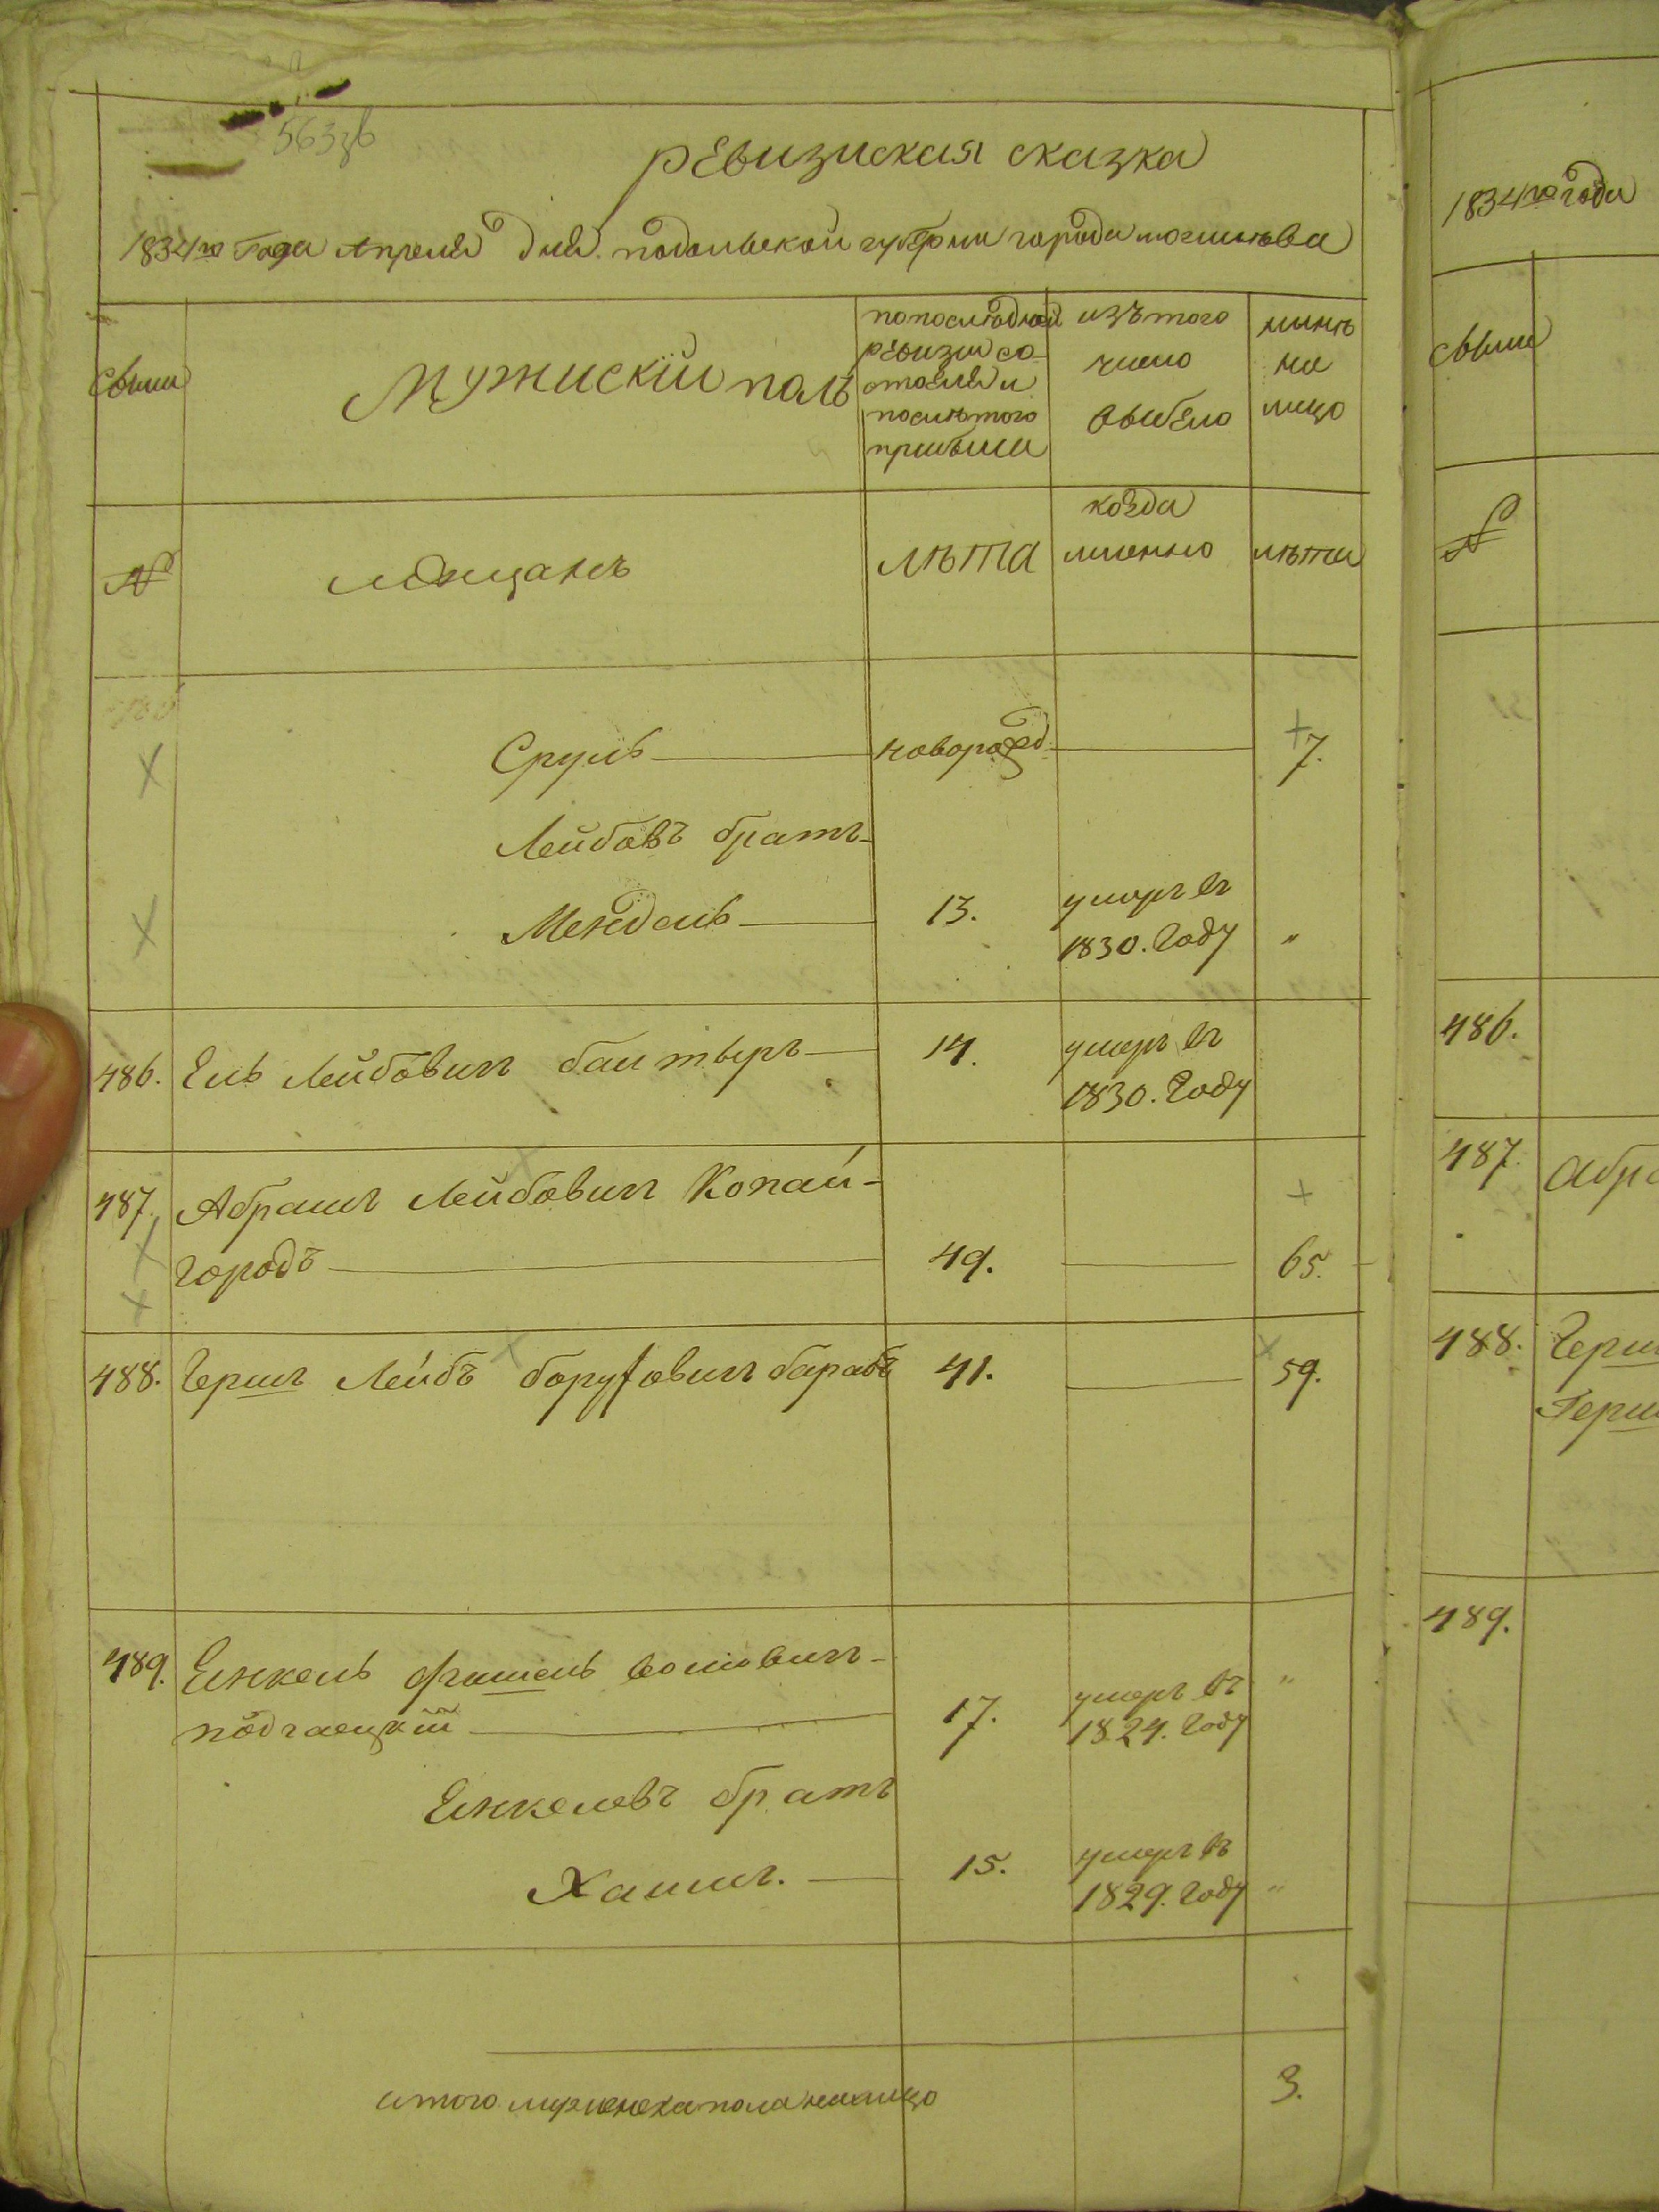 563 зв
ревизиская сказка
1834го Года Апреля дня подольской губернии города могилева
семьи
Мужиский полъ
по последней
ревизии со
стояли и
после того
прибыли
изъ того
число
выбело
ныне
на
лицо
№
мещанъ
лѣта
когда
именно
лѣта
Сруль новорожд 7.
Лейбовъ братъ
Мендель 13. умеръ въ
1830. Году „
486. Ель Лейбовичъ 14. умеръ въ
1830. Году
487. Абрамъ Лейбович Копай-
городъ 49. 65.
488. Гершъ Лейбъ борухович барабъ 41. 59.
489. Еинкель Фишель
подгаецкій 17. умеръ въ
1824. Году „
Еинкелевъ братъ
Хаимъ. 15. умеръ въ
1829. Году „
итого мужеска пола налицо 3.
1834го года
семьи
№
486.
487. Абра
488. Герш
Герш
489.